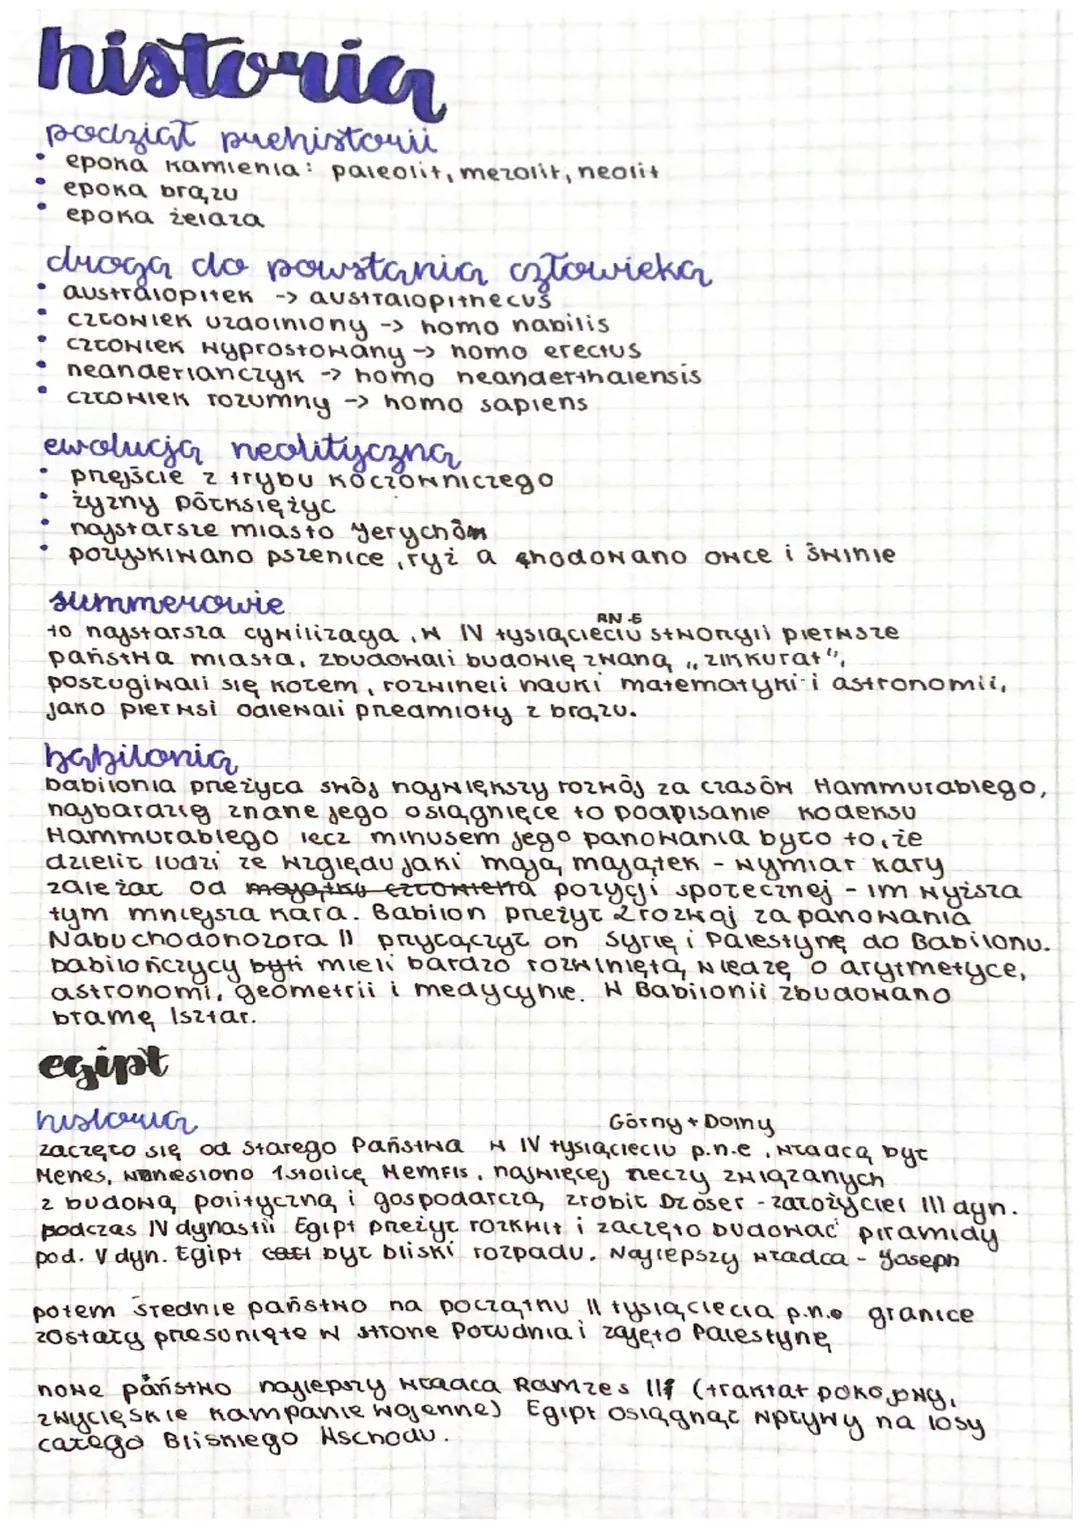 historia
podział prehistorii
• epoka kamienia: paleolit, mezolit, neolit
• epoka brązu
• epoka żelaza
droga do powstania człowieka
• australopitek -> australopithecus
• człowiek uzdolniony -> homo habilis
• człowiek wyprostowany -> homo erectus
• neanderlanczyk -> homo neanderthalensis
• człowiek rozumny -> homo sapiens
ewolucja neolityczna
• przejście z trybu koczowniczego
• żyzny półksiężyc
• najstarsze miasto Jerycho
• pozyskiwano pszenice, ryż a hodowano owce i świnie
summerowie
to najstarsza cywilizaga, w IV tysiącieciu stworzyli pierwsze
państwa miasta, zbudowali budowlę zwaną „zikkurat",
posługiwali się kołem, rozwineli nauki matematyki i astronomii,
jako pierwsi odlewali przedmioty z brązu.
babilonia
babilonia przeżyła swój największy rozwój za czasów Hammurabiego,
najbardziej znane jego osiągnięce to podpisanie kodeksu
Hammurabiego lecz minusem jego panowania było to, że
dzielił ludzi ze względu jaki mają majątek - wymiar kary
zależał od majątku człowieka pozycji społecznej - im wyższa
tym mniejsza kara. Babilon przeżył 2 rozkwit za panowania
Nabuchodonozora II przyłączył on Syrię i Palestynę do Babilonu.
babilończycy byli mieli bardzo rozwiniętą wiedzę o arytmetyce,
astronomi, geometrii i medycynie. W Babilonii zbudowano
bramę Isztar.
egipt
historia
Górny + Dolny
zaczęło się od Starego Państwa w IV tysiącieciu p.n.e, władcą był
Menes, wzniesiono 1 stolicę Memfis, najwięcej rzeczy związanych
z budową polityczną i gospodarczą zrobił Dżoser - założyciel III dyn.
podczas IV dynastii Egipt przeżył rozkwit i zaczęto budować piramidy
pod. V dyn. Egipt był bliski rozpadu. Najlepszy władca - Joseph
potem średnie państwo na początku II tysiąclecia p.n.e granice
zostały przesunięte w strone Południa i zajęto Palestynę
nowe państwo najlepszy władca Ramzes II (traktat pokojowy,
zwycięskie kampanie wojenne) Egipt osiągnął wpływy na losy
całego Bliskiego Wschodu.